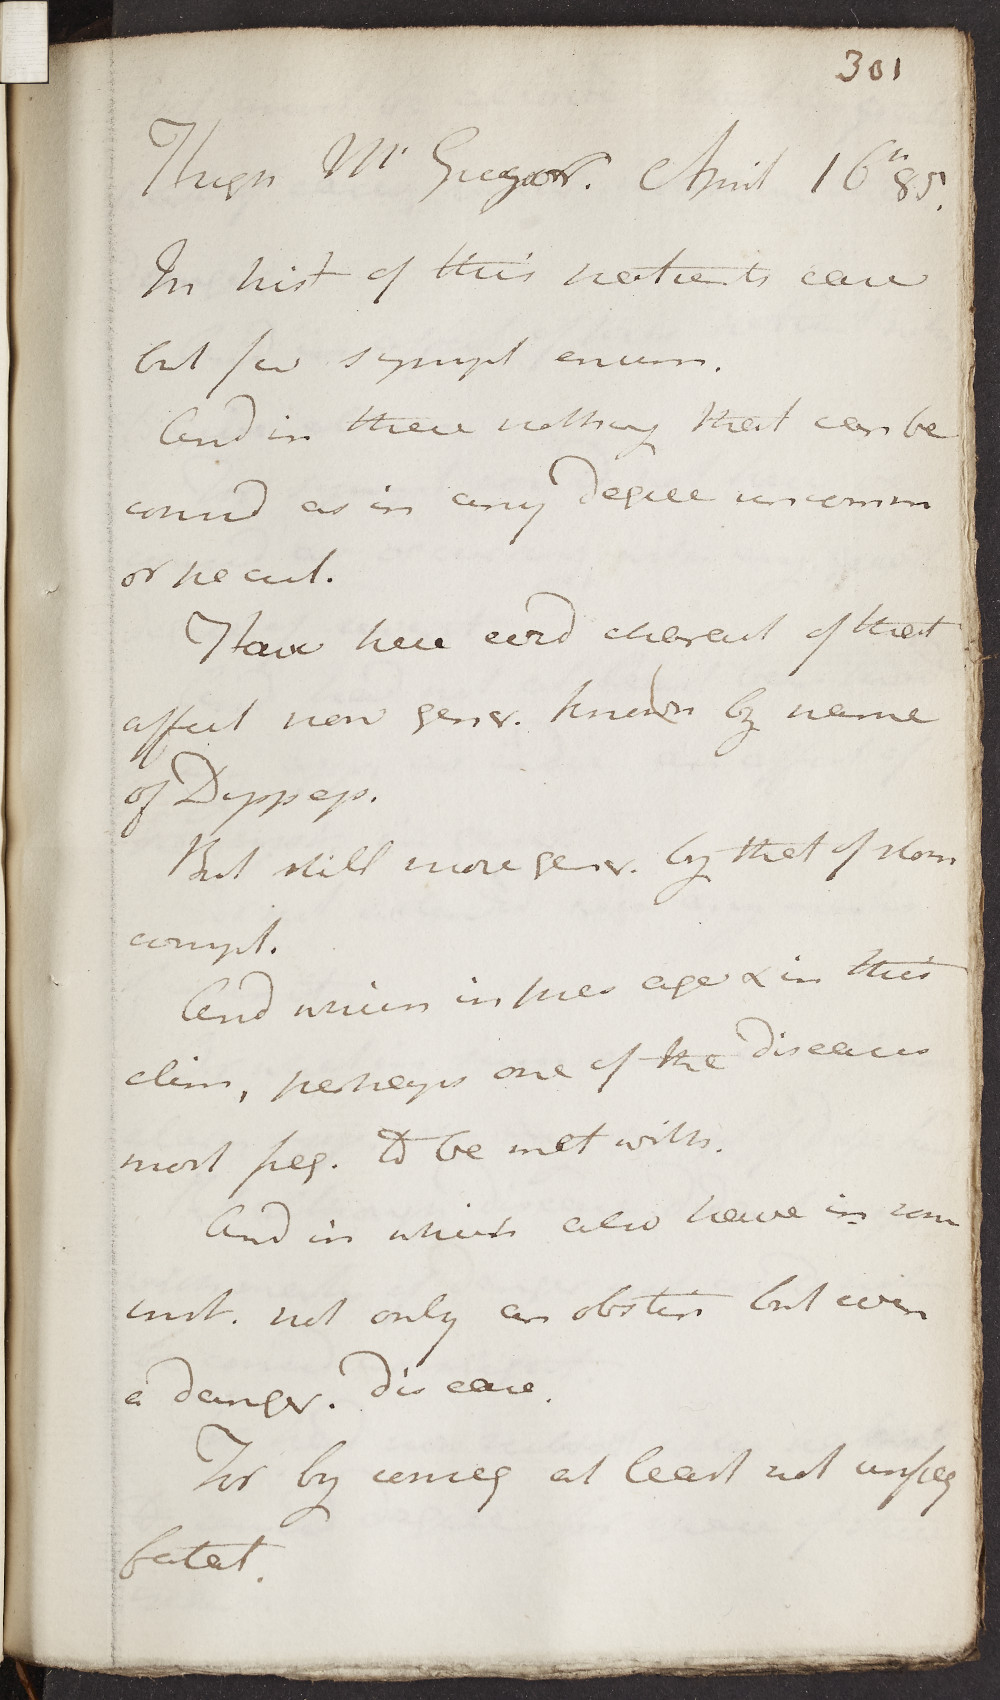 301
Hugh Mc Gregor. April 16th 85.
In hist of this patients case
but few sympt enum.
And in these nothing that can be
considd as in any degree uncomm
or pecul.
Have here evid charact of that
affect now gener. known by name
of Dyspeps.
But still more gener. by that of stom
compl.
And which in pres age & in this
clim, perhaps one of the diseases
most freq. to be met with.
And in which also have in som
inst. not only an obstin but even
a danger. disease.
For by conseq at least not unfreq
fatal.